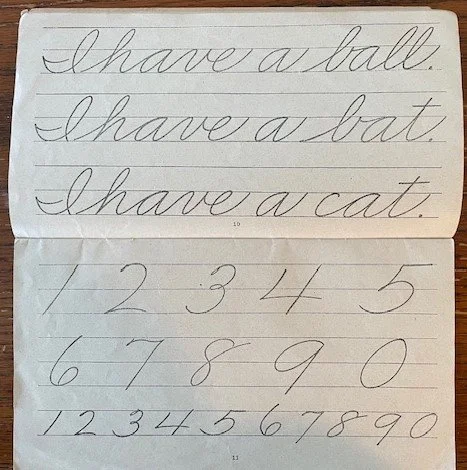 I have a ball.
I have a bat.
I have a cat.
10
1 2 3 4 5
6 7 8 9 0
1 2 3 4 5 6 7 8 9 0
11